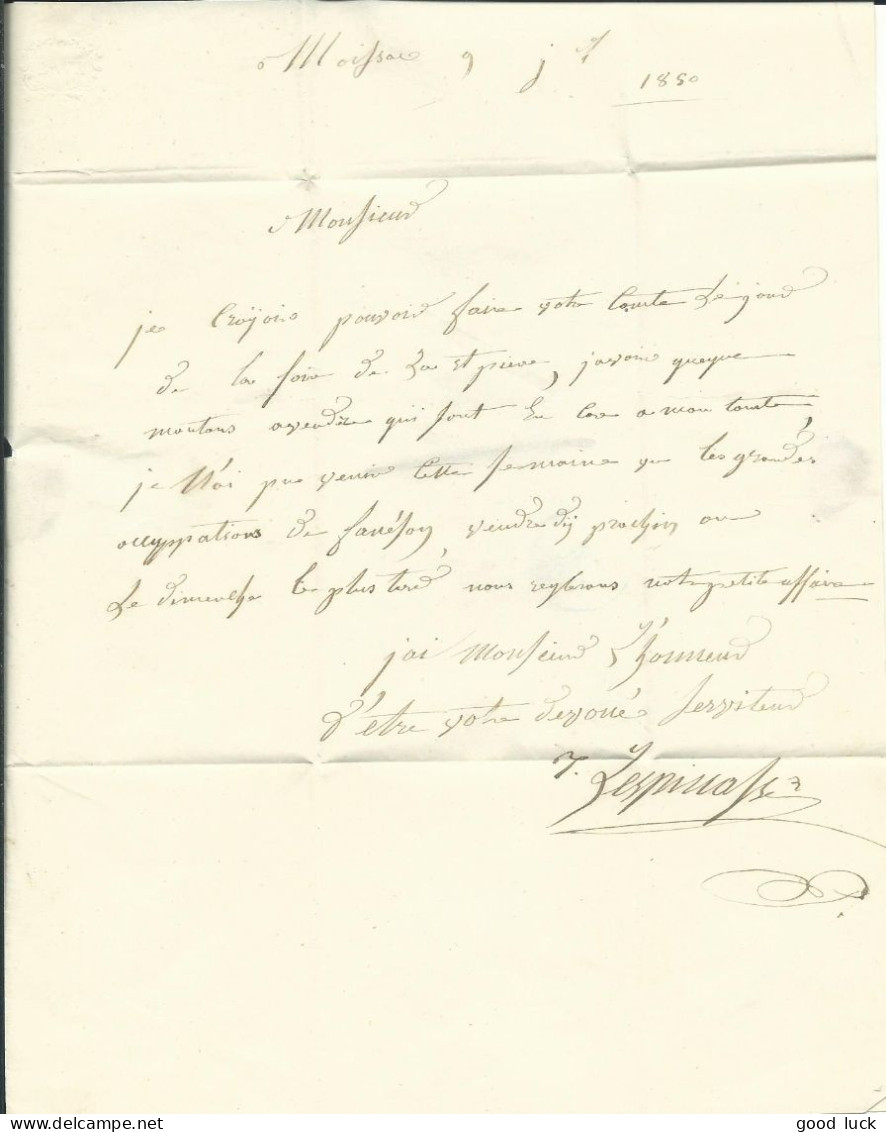 Moissac 9 jt 1850
Monsieur
je Croÿois pouvoir faire votre Compte Le jour
de la foire de La St pierre, javois queque
moutons avendre qui sont En Core a mon Compte,
je N'ai pue venir Cette Semaine vu les grandes
occuppations de , vendredÿ prochin ou
Le dimenche Le plus tard, nous reglerons notre petite affaire
jai Monsieur L'honneur
d'être votre devoué Serviteur
Lespinasse
good luck